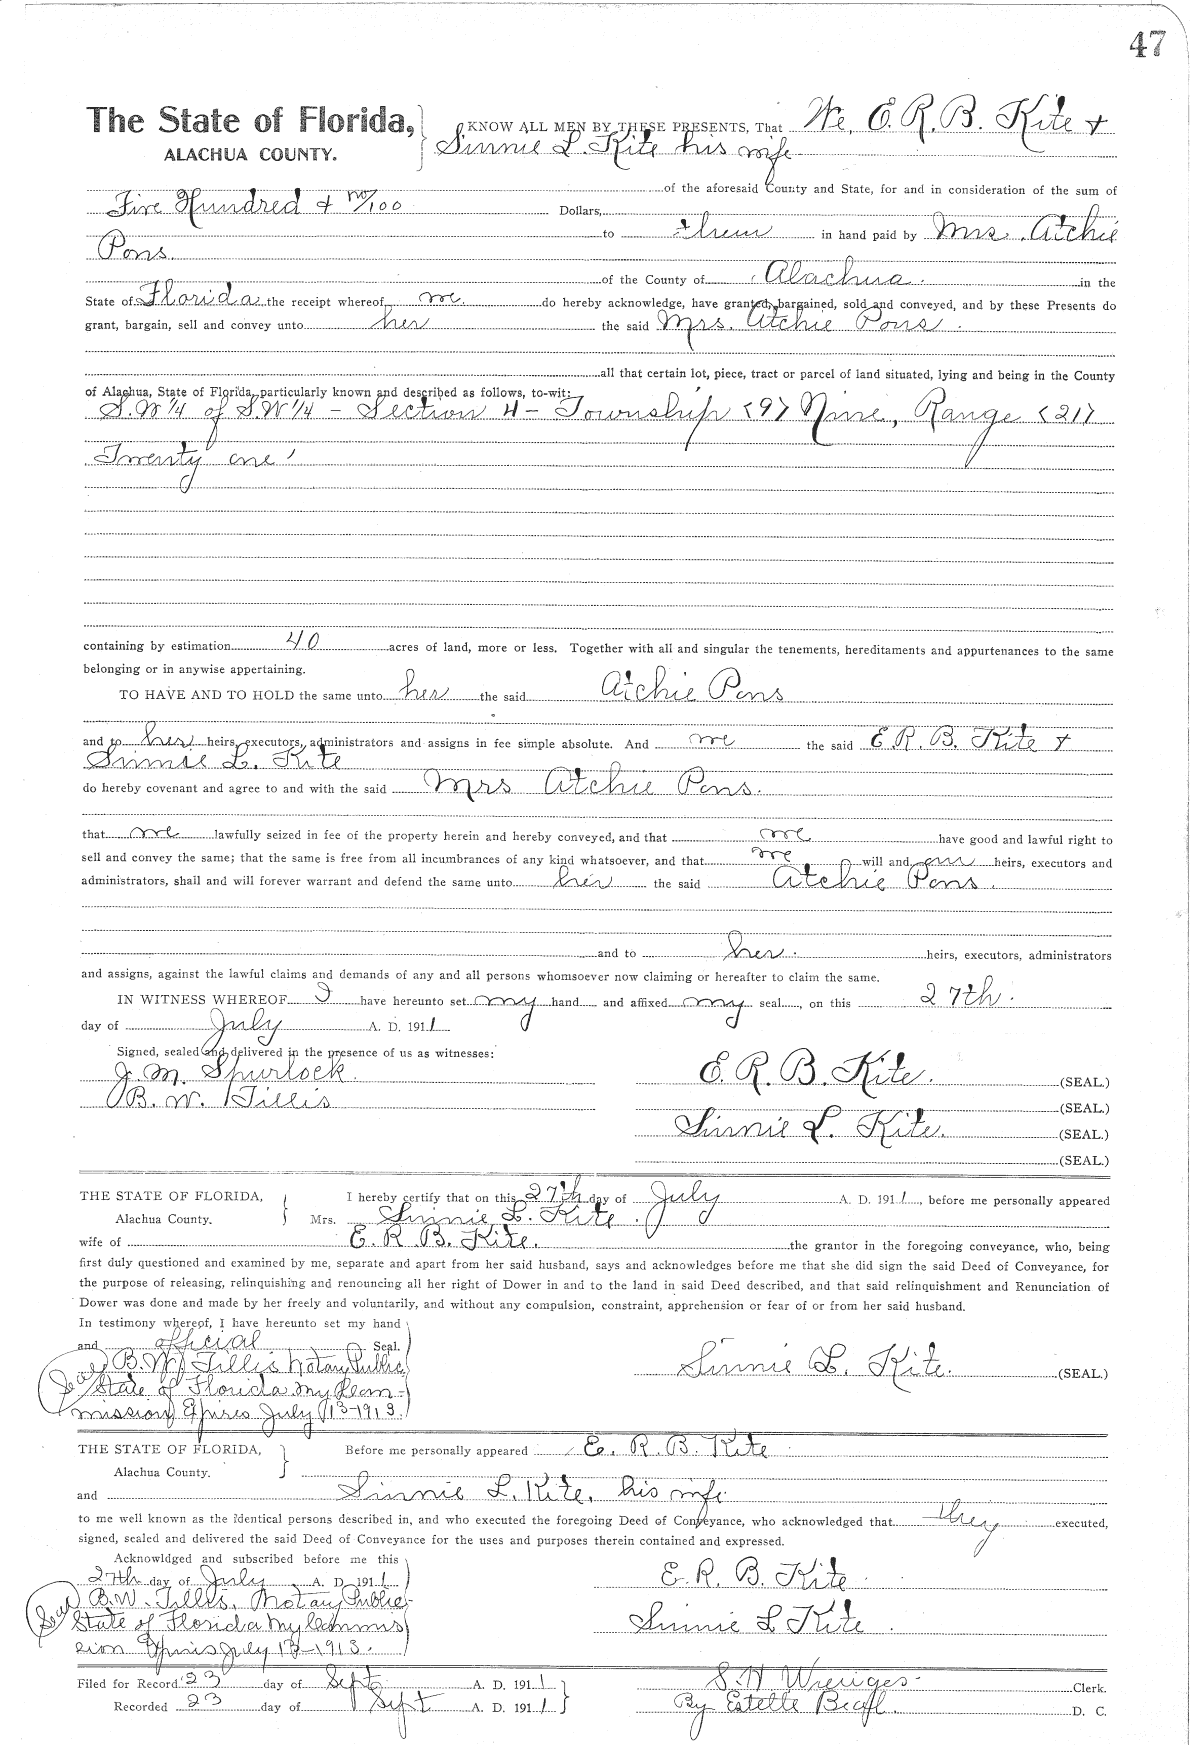 47
The State of Florida,
ALACHUA COUNTY.
KNOW ALL MEN BY THESE PRESENTS, That We, E. R. B. Kite +
Sinnie L. Kite his wife
of the aforesaid County and State, for and in consideration of the sum of
Five Hundred + no/100 Dollars,
to them in hand paid by Mrs. Atchie
Pons.
of the County of Alachua. in the
State of Florida the receipt whereof we do hereby acknowledge, have granted, bargained, sold and conveyed, and by these Presents do
grant, bargain, sell and convey unto her the said Mrs. Atchie Pons.
all that certain lot, piece, tract or parcel of land situated, lying and being in the County
of Alachua, State of Florida, particularly known and described as follows, to-wit:
S.W 1/4 of S.W 1/4 - Section 4 - Township <9> Nine, Range <21>
Twenty one
containing by estimation 40 acres of land, more or less. Together with all and singular the tenements, hereditaments and appurtenances to the same
belonging or in anywise appertaining.
TO HAVE AND TO HOLD the same unto her the said Atchie Pons
and to her heirs, executors, administrators and assigns in fee simple absolute. And we the said E. R. B. Kite +
Sinnie L. Kite
do hereby covenant and agree to and with the said Mrs Atchie Pons.
that we lawfully seized in fee of the property herein and hereby conveyed, and that we have good and lawful right to
sell and convey the same; that the same is free from all incumbrances of any kind whatsoever, and that we will and our heirs, executors and
administrators, shall and will forever warrant and defend the same unto her the said Atchie Pons.
and to her. heirs, executors, administrators
and assigns, against the lawful claims and demands of any and all persons whomsoever now claiming or hereafter to claim the same.
IN WITNESS WHEREOF I have hereunto set my hand and affixed my seal, on this 27th.
day of July A. D. 1911
Signed, sealed and delivered in the presence of us as witnesses:
J. M. Spurlock.
B. W. Tillis
E. R. B. Kite. (SEAL.)
(SEAL.)
Sinnie L. Kite. (SEAL.)
(SEAL.)
THE STATE OF FLORIDA,
Alachua County.
I hereby certify that on this 27th day of July A. D. 1911, before me personally appeared
Mrs. Sinnie L. Kite.
wife of E. R. B. Kite. the grantor in the foregoing conveyance, who, being
first duly questioned and examined by me, separate and apart from her said husband, says and acknowledges before me that she did sign the said Deed of Conveyance, for
the purpose of releasing, relinquishing and renouncing all her right of Dower in and to the land in said Deed described, and that said relinquishment and Renunciation of
Dower was done and made by her freely and voluntarily, and without any compulsion, constraint, apprehension or fear of or from her said husband.
In testimony whereof, I have hereunto set my hand
and official Seal.
Seal B. W. Tillis Notary Public
State of Florida My Com-
mission Expires July 13-1913.
Sinnie L. Kite. (SEAL)
THE STATE OF FLORIDA,
Alachua County.
Before me personally appeared E. R. B. Kite
and Sinnie L. Kite, his wife
to me well known as the identical persons described in, and who executed the foregoing Deed of Conveyance, who acknowledged that they executed,
signed, sealed and delivered the said Deed of Conveyance for the uses and purposes therein contained and expressed.
Acknowldged and subscribed before me this
27th day of July A. D. 1911
Seal B. W. Tillis, Notary Public
State of Florida My Commis
sion Expires July 13-1913.
E. R. B. Kite
Sinnie L Kite.
Filed for Record 23 day of Sept A. D. 1911
Recorded 23 day of Sept A. D. 1911
S. H Wienges. Clerk.
By Estelle D. C.